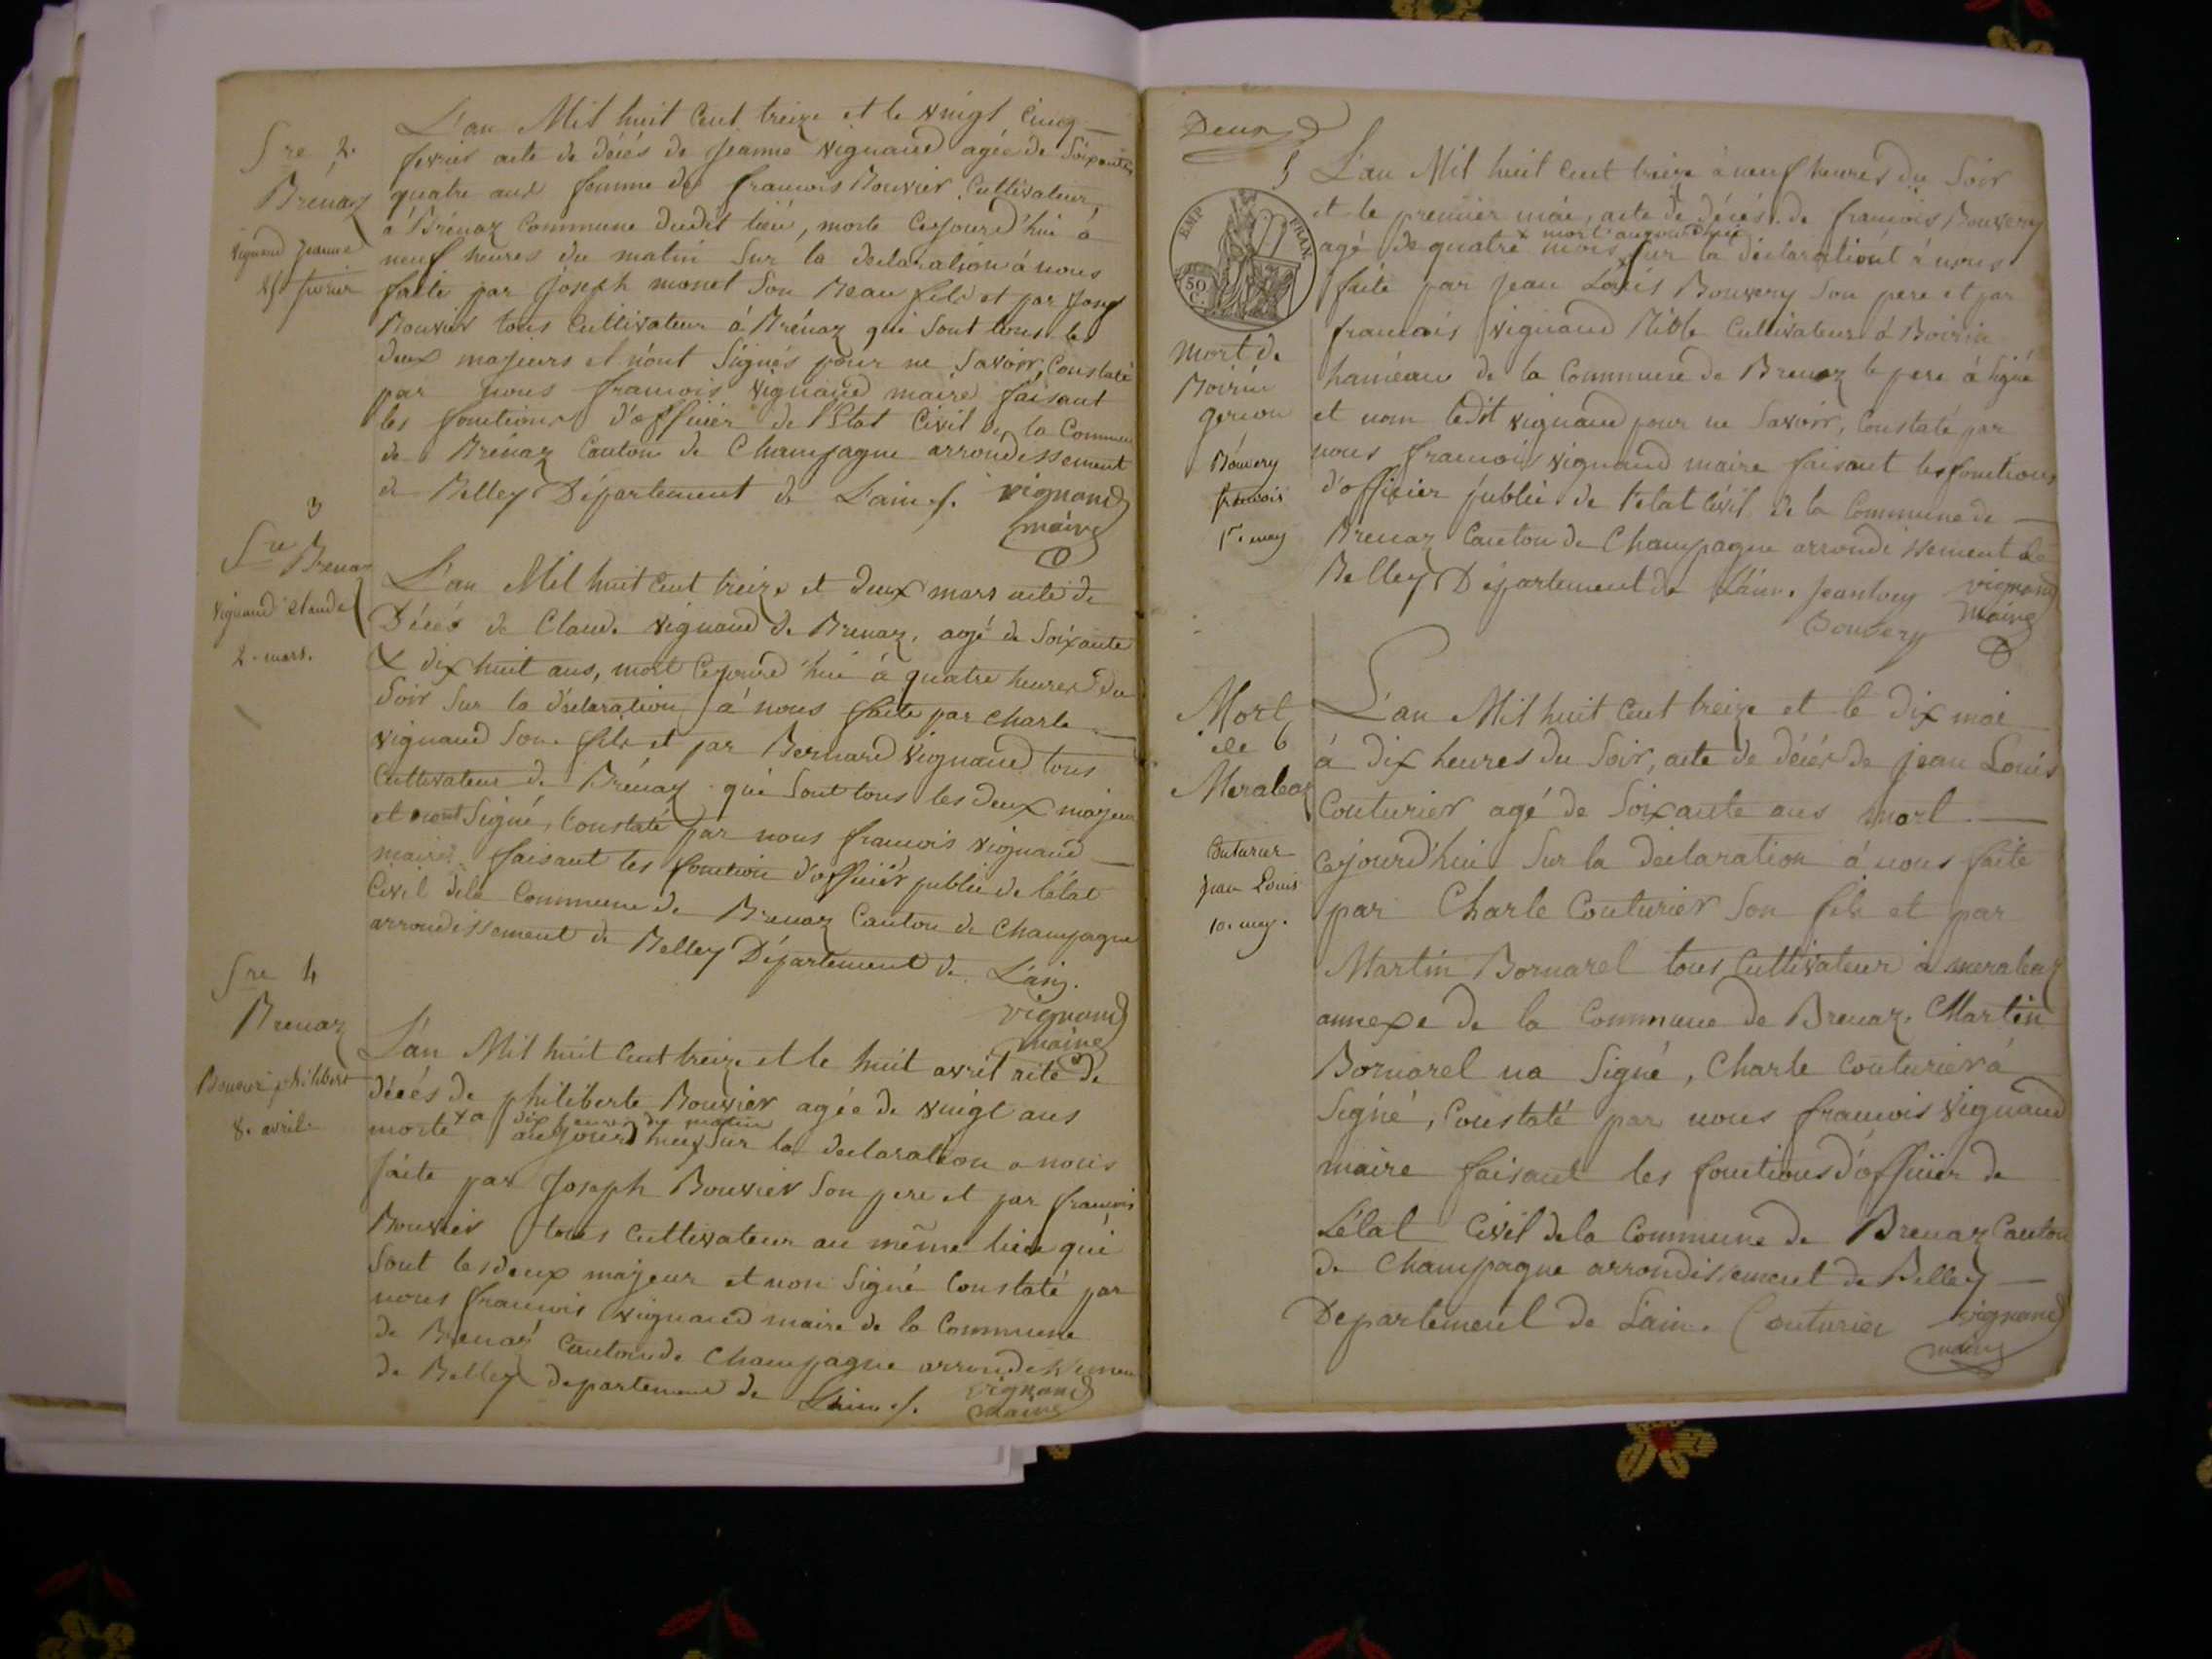 Sre 2.
Brénaz
vignaud jeanne
25 fevrier
L'an Mil huit Cent treize et le vingt Cinq
fevrier acte de décés de Jeanne vignaud agée de Soixante
quatre ans femme de francois Bouvier Cultivateur
á Brénaz Commune dudit lieu, morte Cejourd'hui á
neuf heures du matin Sur la declaration á nous
faite par Joseph monet Son Beau fils et par Josep
Bouvier tous Cultivateur á Brénaz qui Sont tous les
deux majeurs et n'ont Signés pour ne Savoir, Constaté
par nous francois vignaud maire faisant
les fonctions d'officier de l'Etat Civil de la Commune
de Brénaz Canton de Champagne arrondissement
de Belley Département de L'ain ./. vignaud
maire
3
Sre Brenaz
vignaud Claude
2. mars.
L'an Mil huit Cent treize et deux mars acte de
Décés de Claude vignaud de Brenaz, agé de Soixante
& dix huit ans, mort Cejourd'hui á quatre heures du
Soir Sur la déclaration á nous faite par Charle
vignaud Son fils et par Bernard vignaud tous
Cultivateur de Brénaz qui Sont tous les deux majeur
et nont Signé, Constaté par nous francois vignaud
maire faisant les fonction d'officiér public de l'état
Civil dela Commune de Brenaz Canton de Champagne
arrondissement de Belley Département de L'ain.
vignaud
maire
Sre 4
Brenaz
Bouvier philiberte
8. avril.
L'an Mil huit Cent treize et le huit avril acte de
décés de philiberte Bouvier agée de vingt ans
x a dix heures du matin
morte aujourd'hui x Sur la declaration a nous
faite par Joseph Bouvier Son pere et par francois
Bouvier tous Cultivateur au même lieu qui
Sont les deux majeur et non Signé Constaté par
nous francois vignaud maire de la Commune
de Brenaz Canton de Champagne arrondissemen
de Belley departement de Lain ./. vignaud
maire
Deux
5
EMP FRAN.
50
C.
Mort de
Boirin
gerion
Bouvery
francois
1er. may
L'an Mil huit Cent treize á neuf heures du Soir
et le premier mai, acte de Décés de francois Bouvery
x mort aujourd'hui
agé de quatre mois x Sur la déclarationt á nous
faite par Jean Louis Bouvery Son pere et par
francois vignaud Cultivateur á Boirin
hameau de la Commune de Brenaz le pere á Signé
et non ledit vignaud pour ne Savoir, Constaté par
nous francois vignaud maire faisant les fonctions
d'officier public de l'etat Civil de la Commune de
Brenaz Canton de Champagne arrondissement de
Belley Département de L'ain. Jean Louy vignaud
Bouvery maire
Mort
de 6
Meraleaz
Couturier
Jean Louis
10. may.
L'an Mil huit Cent treize et le Dix mai
á dix heures du Soir, acte de décés de jean Louis
Couturier agé de Soixante ans mort
Cejourd'hui Sur la déclaration á nous faite
par Charle Couturier Son fils et par
Martin Bornarel tous Cultivateur á meraleaz
annexe de la Commune de Brenaz. Martin
Bornarel na Signé, Charle Couturier á
Signé, Constaté par nous francois Vignaud
maire faisant les fonctions d'officier de
L'état Civil dela Commune de Brenaz Canton
de Champagne arrondissement de Belley
Département de L'ain. Couturier vignaud
maire